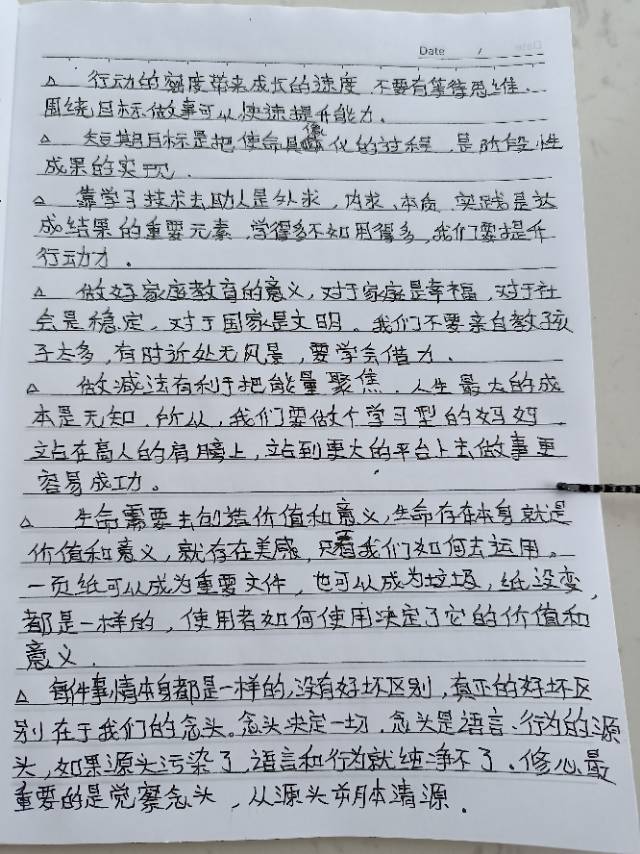 Date /
△ 行动的密度带来成长的速度 不要有等待思维.
围绕目标做事可以快速提升能力.
△ 短期目标是把使命具像化的过程,是阶段性
成果的实现.
△ 靠学习技术去助人是外求,内求、本质 实践是达
成结果的重要元素,学得多不如用得多,我们要提升
行动力.
△ 做好家庭教育的意义,对于家庭是幸福,对于社
会是稳定,对于国家是文明。我们不要亲自教孩
子太多,有时近处无风景,要学会借力.
△ 做减法有利于把能量聚焦.人生最大的成
本是无知.所以,我们要做个学习型的妈妈
站在高人的肩膀上,站到更大的平台上去做事更
容易成功。
△ 生命需要去创造价值和意义,生命存在本身就是
价值和意义,就存在美感,只看我们如何去运用。
一页纸可以成为重要文件,也可以成为垃圾,纸没变,
都是一样的,使用者如何使用决定了它的价值和
意义.
△ 每件事情本身都是一样的,没有好坏区别,真正的好坏区
别在于我们的念头。念头决定一切.念头是语言、行为的源
头,如果源头污染了,语言和行为就纯净不了.修心最
重要的是觉察念头,从源头 本清源.